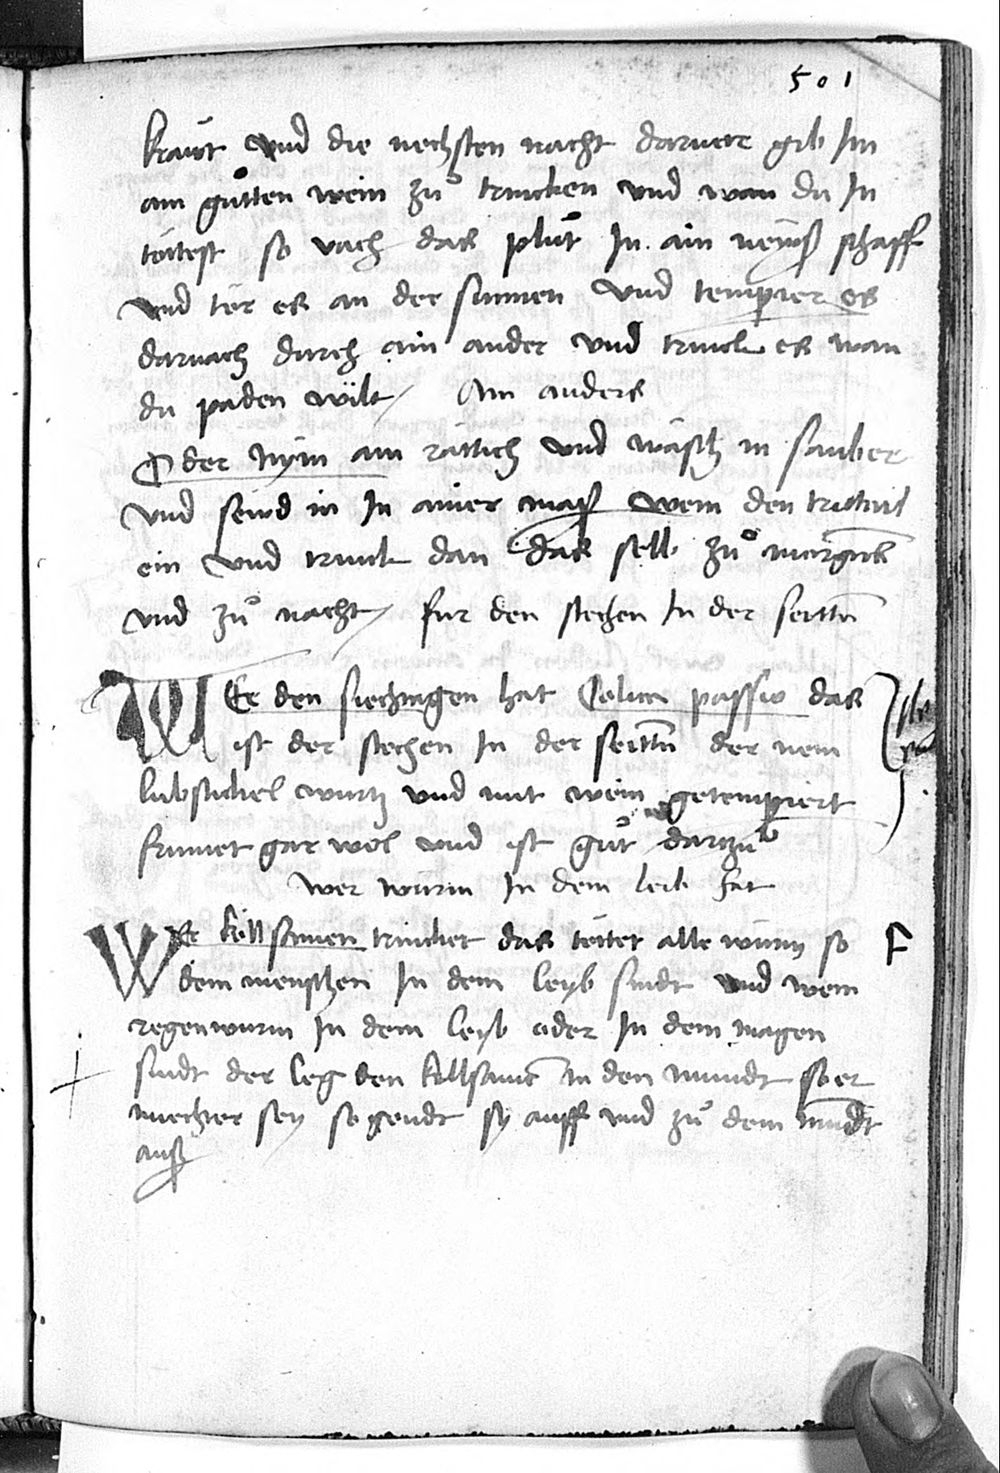 501
kraut vnd die nechsten nacht daruor gib Im
ain gůtten wein zů trincken vnd wan du In
töttest so vach das plut In ain newß schaff
vnd terr es an der sunnen vnd temperier es
darnach durch ain ander vnd trinck es wan
du paden wilt / Ain anders
Oder Nym ain rättich vnd wäsch in sauber
vnd seud in In ainer maß wein den trittail
ein vnd trinck dan das selb zů morgens
vnd zů nacht / fur den stechen In der seittñ
WEr den siechtagen hat Colica passio das
ist der stechen In der seittñ der nem
lubstickel wurtz vnd mit wein getemperiert
frumet gar wol vnd ist gůt dartzu
wer wurm In dem leib hat
WEr köllsamen trincket das tötet alle würm so
dem menschen In dem leyb sindt vnd wem
regenwurm In dem leyb oder In dem magen
sindt der leg den köllsamē in den mundt so er
nuechter sey so gendt sy auff vnd zů dem mūdt
auß